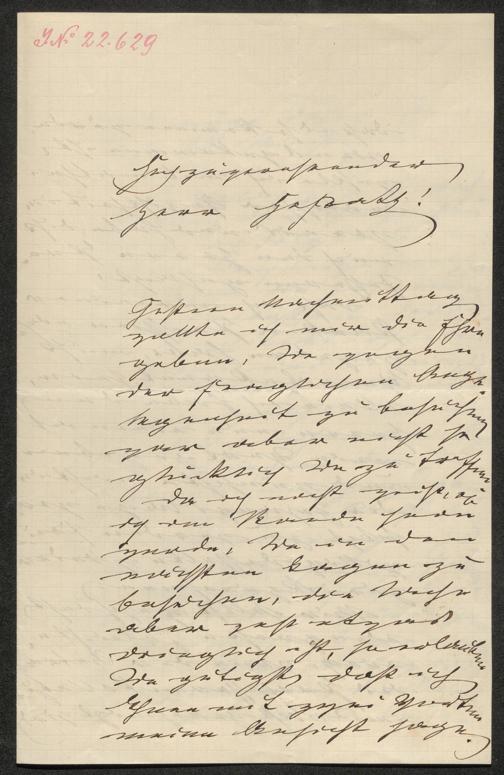 JNo 22.629
Hochzuverehrender
Herr Hofrath!
Gestern Nachmittag
wollte ich mir die Ehre
geben, Sie wegen
der fraglichen Ange
legenheit zu besuchen,
war aber nicht so
glücklich Sie zu treffen.
Da ich nicht weiß, ob
ich im Stande sein
werde, Sie in den
nächsten Tagen zu
besuchen, die Sache
aber jetzt etwas
dringlich ist, so erlauben
Sie gütigst, daß ich
Ihnen mit zwei Worten
meine Ansicht sage.